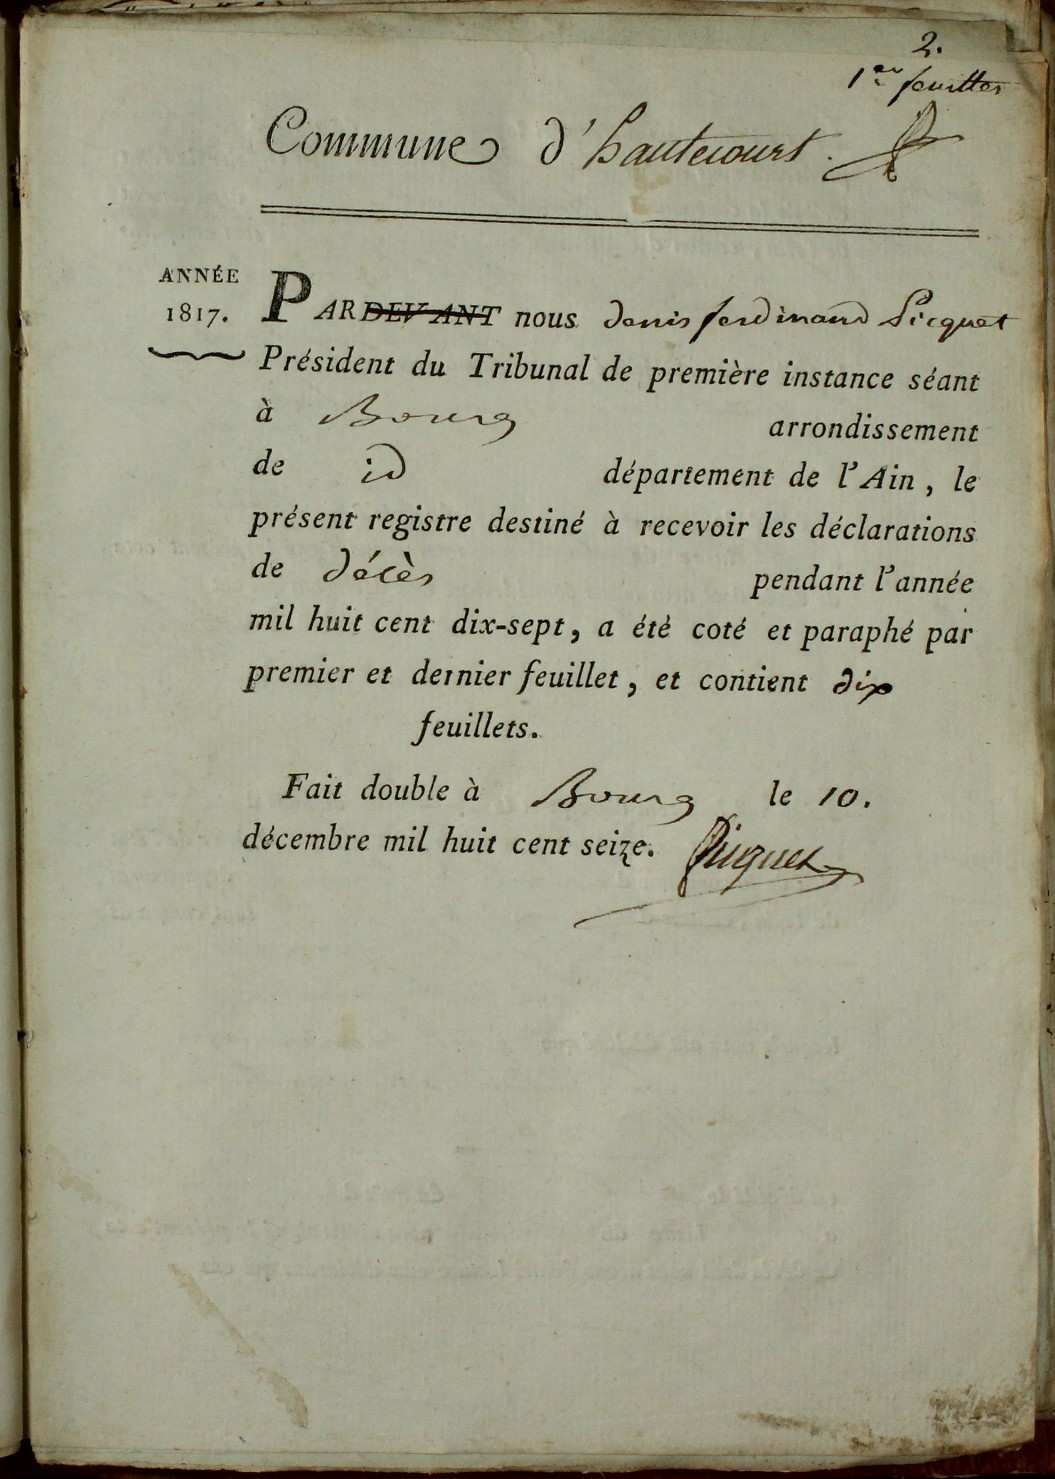 2.
1er feuillet
Commune d'hautecourt.
ANNÉE
1817.
PARDEVANT nous denis ferdinand Picquet
Président du Tribunal de première instance séant
à Bourg arrondissement
de id département de l'Ain, le
présent registre destiné à recevoir les déclarations
de décès pendant l'année
mil huit cent dix-sept, a été coté et paraphé par
premier et dernier feuillet, et contient dix
feuillets.
Fait double à Bourg le 10.
décembre mil huit cent seize. Picquet